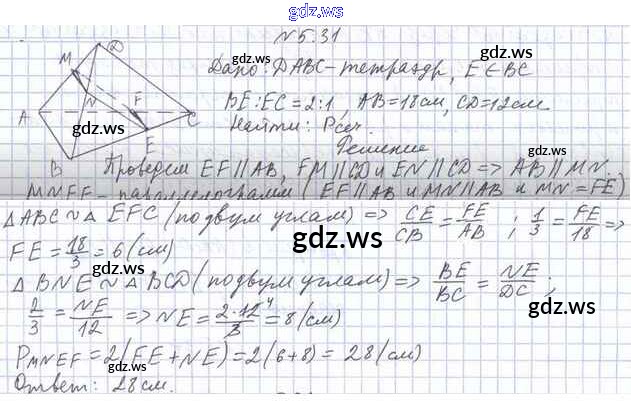 gdz.ws
№ 5.31
Дано: DABC - тетраэдр, E ∈ BC
gdz.ws
BE : EC = 2:1, AB = 18 см, CD = 12 см.
Найти: Pсеч.
Решение
Проведем EF || AB, FM || CD и EN || CD => AB || MN
MNEF - параллелограмм (EF || AB и MN || AB и MN = FE)
△ABC ~ △EFC (по двум углам) => CE/CB = FE/AB ; 1/3 = FE/18 =>
FE = 18/3 = 6 (см)
gdz.ws
△BNE ~ △BCD (по двум углам) => BE/BC = NE/DC ;
2/3 = NE/12 => NE = 2·12/3 = 8 (см)
PMNEF = 2(FE + NE) = 2(6+8) = 28 (см)
Ответ: 28 см.
M
D
N
F
A
C
E
B
gdz.ws
gdz.ws
gdz.ws
gdz.ws
gdz.ws
gdz.ws